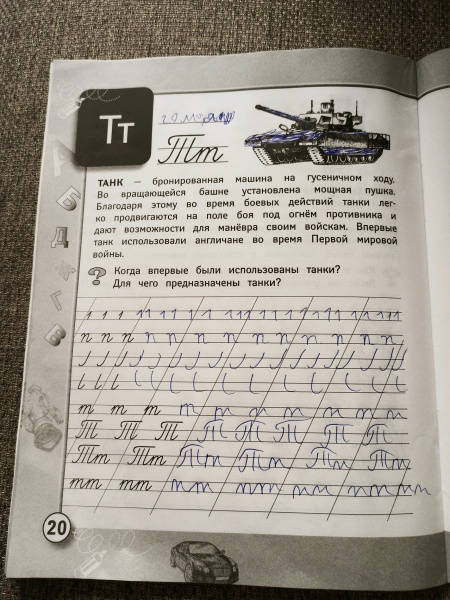 Тт
Тт
ТАНК — бронированная машина на гусеничном ходу.
Во вращающейся башне установлена мощная пушка.
Благодаря этому во время боевых действий танки лег-
ко продвигаются на поле боя под огнём противника и
дают возможности для манёвра своим войскам. Впервые
танк использовали англичане во время Первой мировой
войны.
? Когда впервые были использованы танки?
Для чего предназначены танки?
т т т т т т т т т т
Т Т Т Т Т Т Т Т
Тт Тт Тт Тт Тт Тт
тт тт тт тт тт тт тт
А
Б
Д
Ж
Г
В
20